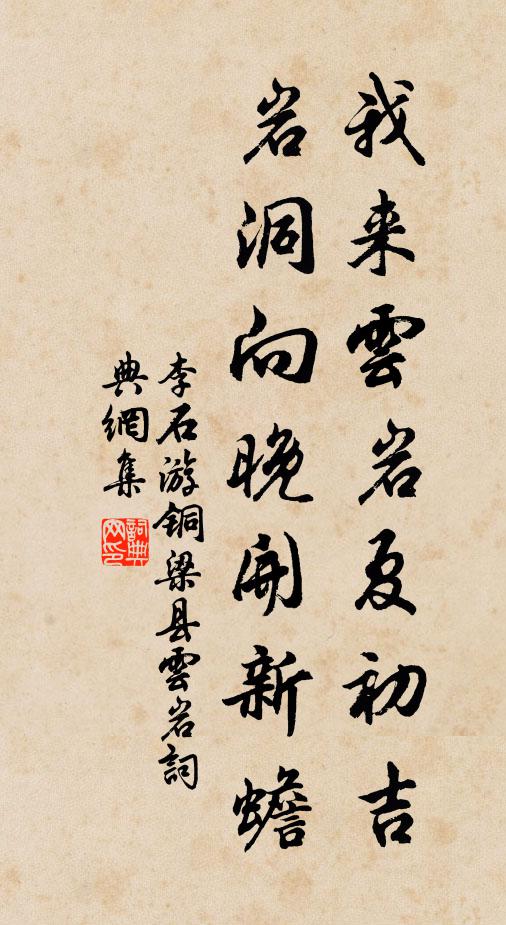 我来雲岩夏初吉
岩洞向晚開新蟾
李石游銅梁县雲岩詞
典網集
詞典網印